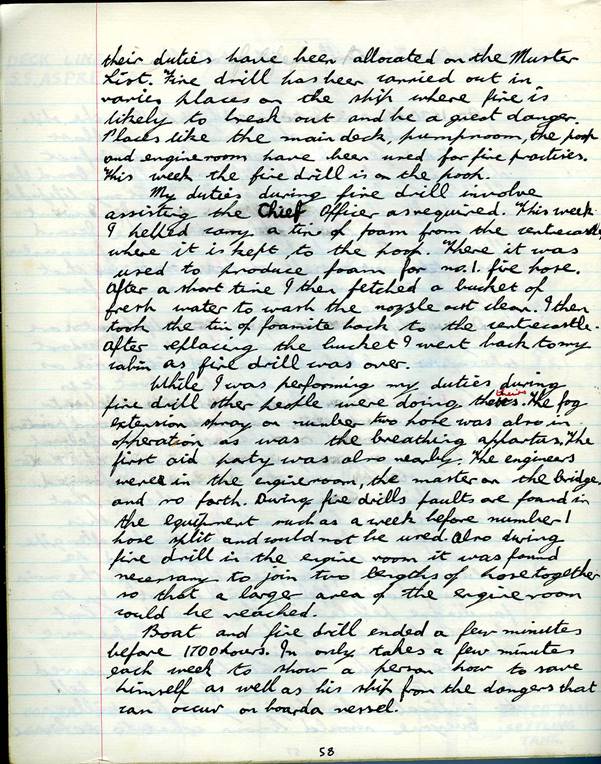 their duties have been allocated on the Muster
List. Fire drill has been carried out in
varies places on the ship where fire is
likely to break out and be a great danger.
Places like the main deck, pumproom, the poop
and engineroom have been used for fire practises.
This week the fire drill is on the poop.
My duties during fire drill involve
assisting the Chief Officer as required. This week
I helled carry a tin of foam from the centrecastle
where it is kept to the poop. There it was
used to produce foam for no.1. fire hose.
After a short time I then fetched a bucket of
fresh water to wash the nozzle out clean. I then
took the tin of foamite back to the centrecastle.
After replacing the bucket I went back to my
cabin as fire drill was over.
While I was performing my duties during
theirs
fire drill other people were doing. The fog
extension spray on number two hose was also in
opperation as was the breathing appartus. The
first aid party was also nearby. The engineers
were in the engineroom, the master on the bridge,
and so forth. During fire drills faults are found in
the equipment such as a week before number 1
hose split and could not be used. Also during
fire drill in the engine room it was found
necessary to join two lengths of hose together
so that a larger area of the engineroom
could be reached.
Boat and fire drill ended a few minutes
before 1700 hours. In only takes a few minutes
each week to show a person how to save
himself as well as his ship from the dangers that
can occur on board a vessel.
58